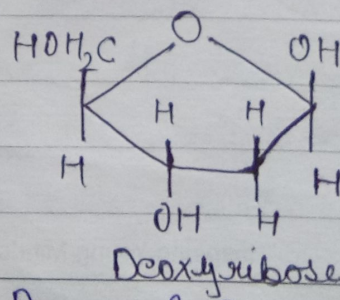 O
HOH₂C OH
H H
H H
OH H
Deoxyribose